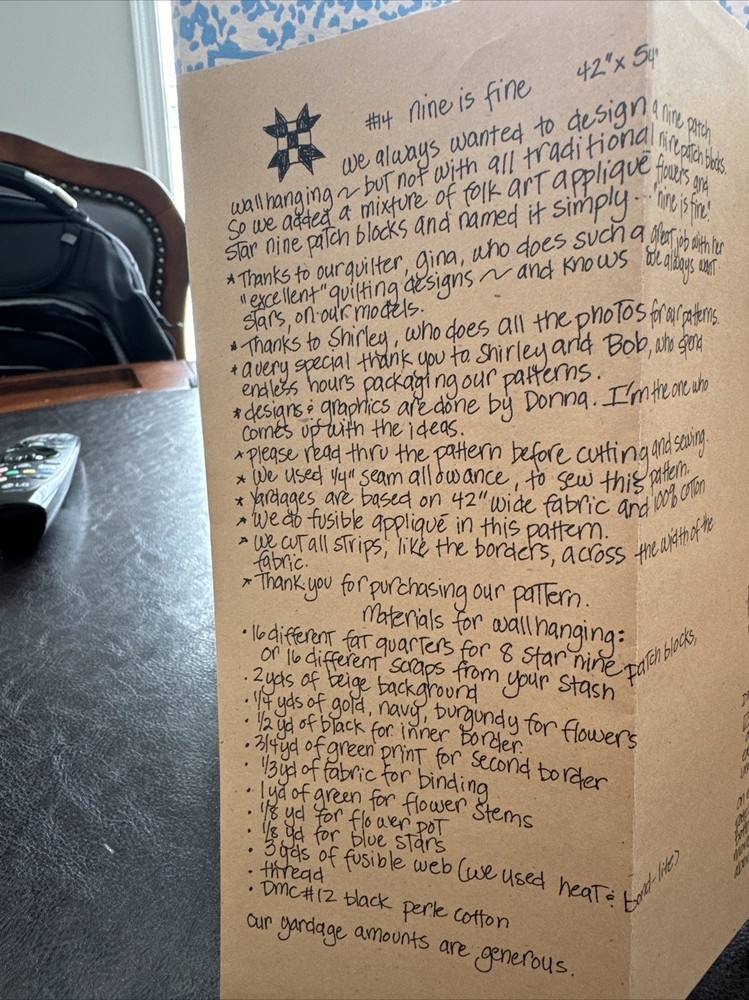 #14 nine is fine 42" x 54"
we always wanted to design a nine patch
wallhanging ~ but not with all traditional nine patch blocks.
So we added a mixture of folk art appliqué flowers and
star nine patch blocks and named it simply... "nine is fine".
* Thanks to our quilter, Gina, who does such a great job with her
"excellent" quilting designs ~ and knows we always want
stars, on our models.
* Thanks to Shirley, who does all the photos for our patterns.
* a very special thank you to Shirley and Bob, who spend
endless hours packaging our patterns.
* designs & graphics are done by Donna. I'm the one who
comes up with the ideas.
* please read thru the pattern before cutting and sewing.
* We used 1/4" seam allowance, to sew this pattern.
* Yardages are based on 42" wide fabric and 100% cotton
* We do fusible appliqué in this pattern.
* we cut all strips, like the borders, across the width of the
fabric.
* Thank you for purchasing our pattern.
Materials for wallhanging:
• 16 different fat quarters for 8 star nine patch blocks,
or 16 different scraps from your stash
• 2 yds of beige background
• 1/4 yds of gold, navy, burgundy for flowers
• 1/2 yd of black for inner border
• 3/4 yd of green print for second border
• 1/3 yd of fabric for binding
• 1 yd of green for flower stems
• 1/8 yd for flower pot
• 1/8 yd for blue stars
• 3 yds of fusible web (we used heat & bond-lite)
• thread
• DMC #12 black perle cotton
our yardage amounts are generous.
LG